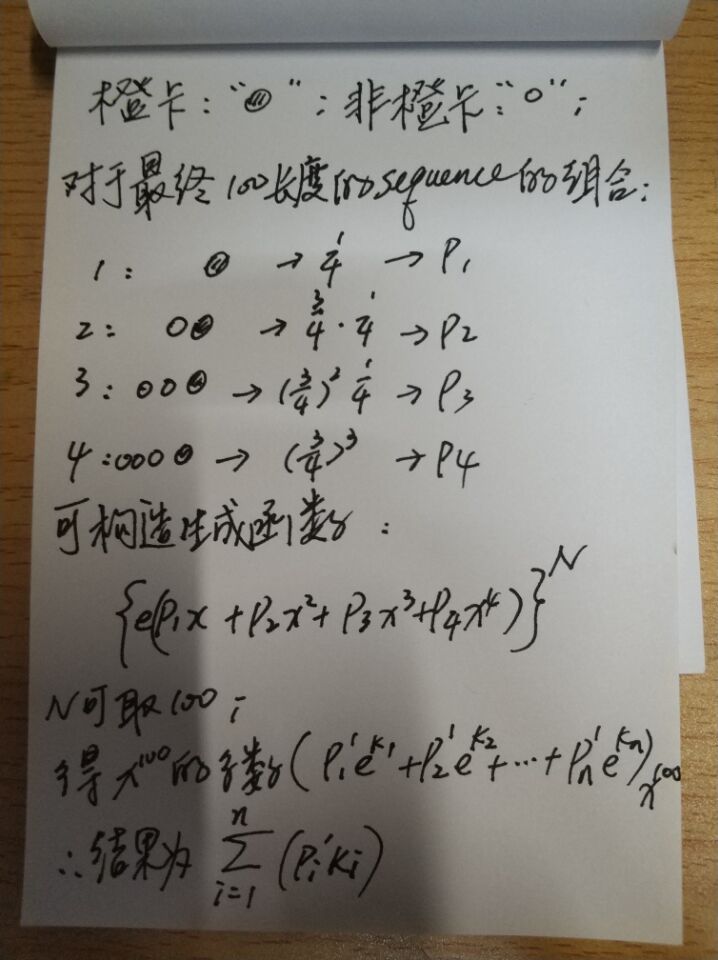 橙卡：“●”；非橙卡“○”；
对于最终100长度的sequence的组合：
1： ● → 1/4 → P₁
2： ○● → 3/4 · 1/4 → P₂
3：○○● → (3/4)² 1/4 → P₃
4：○○○● → (3/4)³ → P₄
可构造生成函数：
{e(P₁x + P₂x² + P₃x³ + P₄x⁴)}ᴺ
N可取100；
得x¹⁰⁰的系数(P₁'e^{K₁} + P₂'e^{K₂} + ⋯ + Pₙ'e^{Kₙ})x¹⁰⁰
∴结果为 ∑_{i=1}^{n} (Pᵢ'Kᵢ)